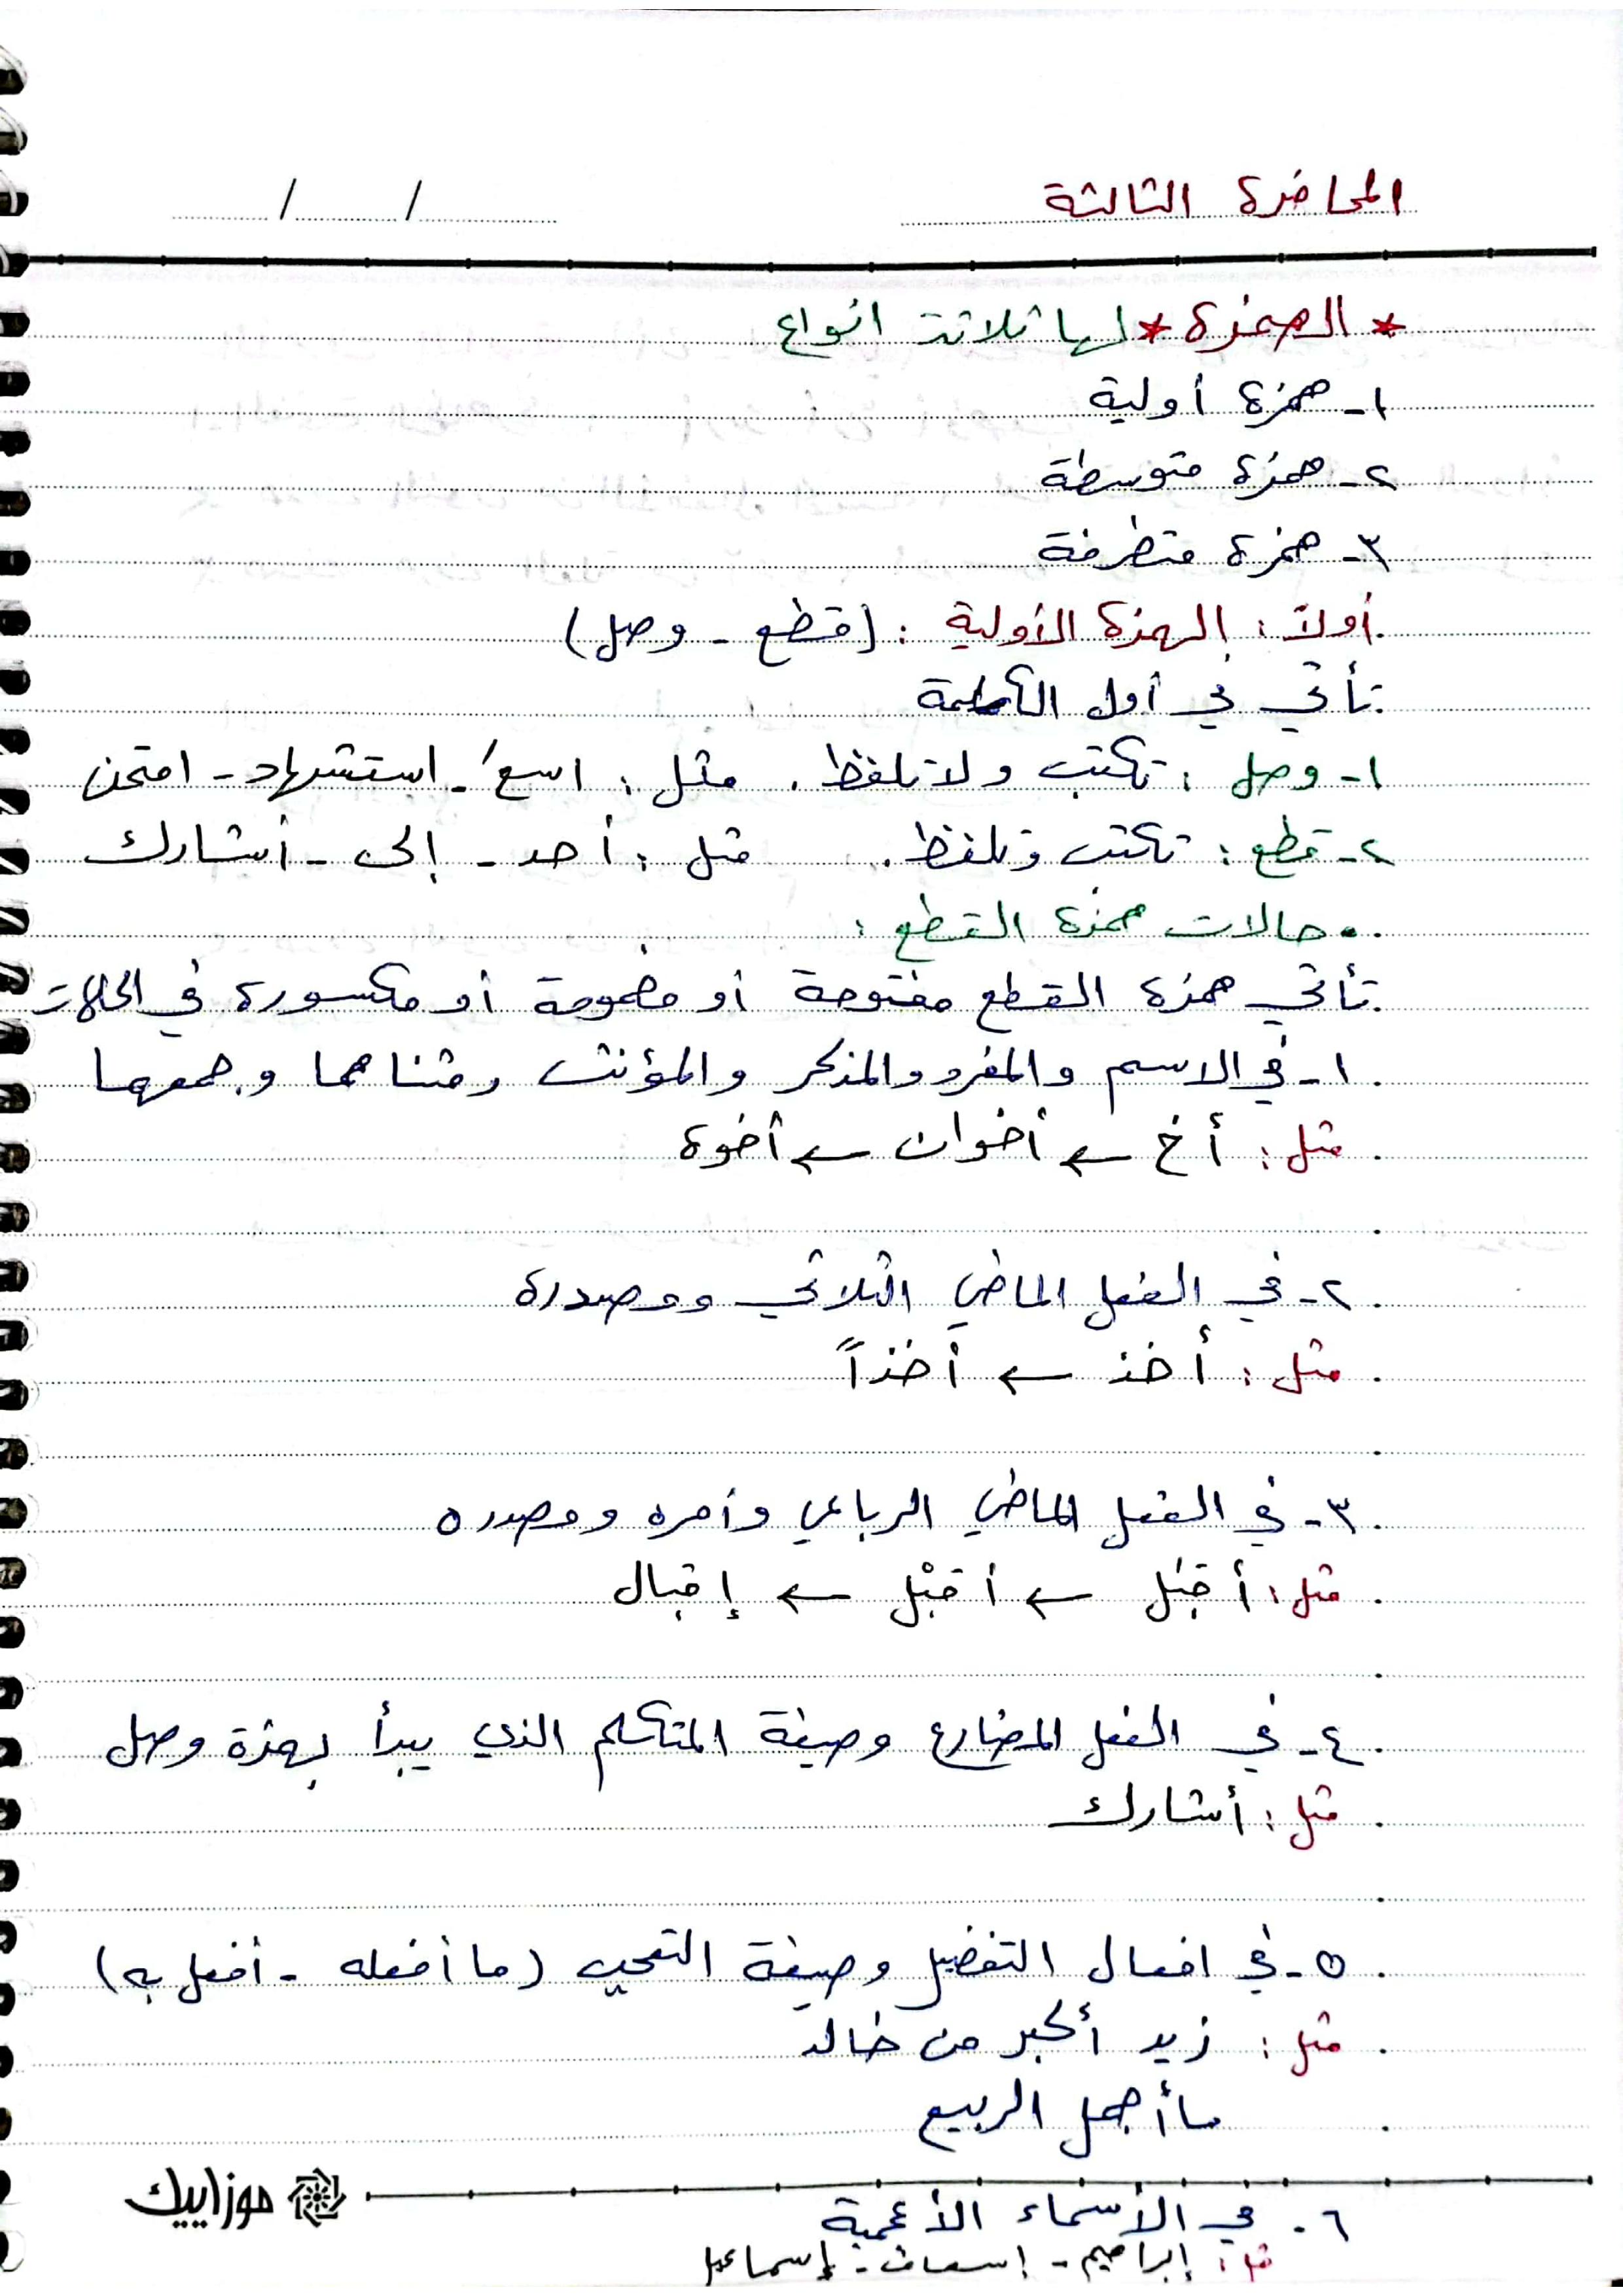 المحاضرة الثالثة
/ /
* الهمزة * لها ثلاثة انواع
١- همزة أولية
٢- همزة متوسطة
٣- همزة متطرفة
أولاً : الهمزة الأولية : (قطع - وصل)
تأتي في أول الكلمة
١- وصل : تكتب ولا تلفظ . مثل : اسع - استشهاد - امتحن
٢- قطع : تكتب وتلفظ . مثل : أحد - إلى - أشارك
• حالات همزة القطع :
تأتي همزة القطع مفتوحة أو مضمومة أو مكسورة في الحالات
١- في الاسم والمفرد والمذكر والمؤنث ومثناهما وجمعهما
مثل : أخ ← أخوان ← أخوة
٢- في الفعل الماضي الثلاثي ومصدرة
مثل : أخذ ← أخذاً
٣- في الفعل الماضي الرباعي وأمره ومصدره
مثل : أقبَل ← أقبْل ← إقبال
٤- في الفعل المضارع وصيغة المتكلم الذي يبدأ بهمزة وصل
مثل : أشارك
٥- في افعال التفضيل وصيغة التعجب (ما أفعله - أفعل به)
مثل : زيد أكبر من خالد
ما أجمل الربيع
موزاييك
٦- في الأسماء الأعجمية
مثل : إبراهيم - إسحاق - إسماعيل